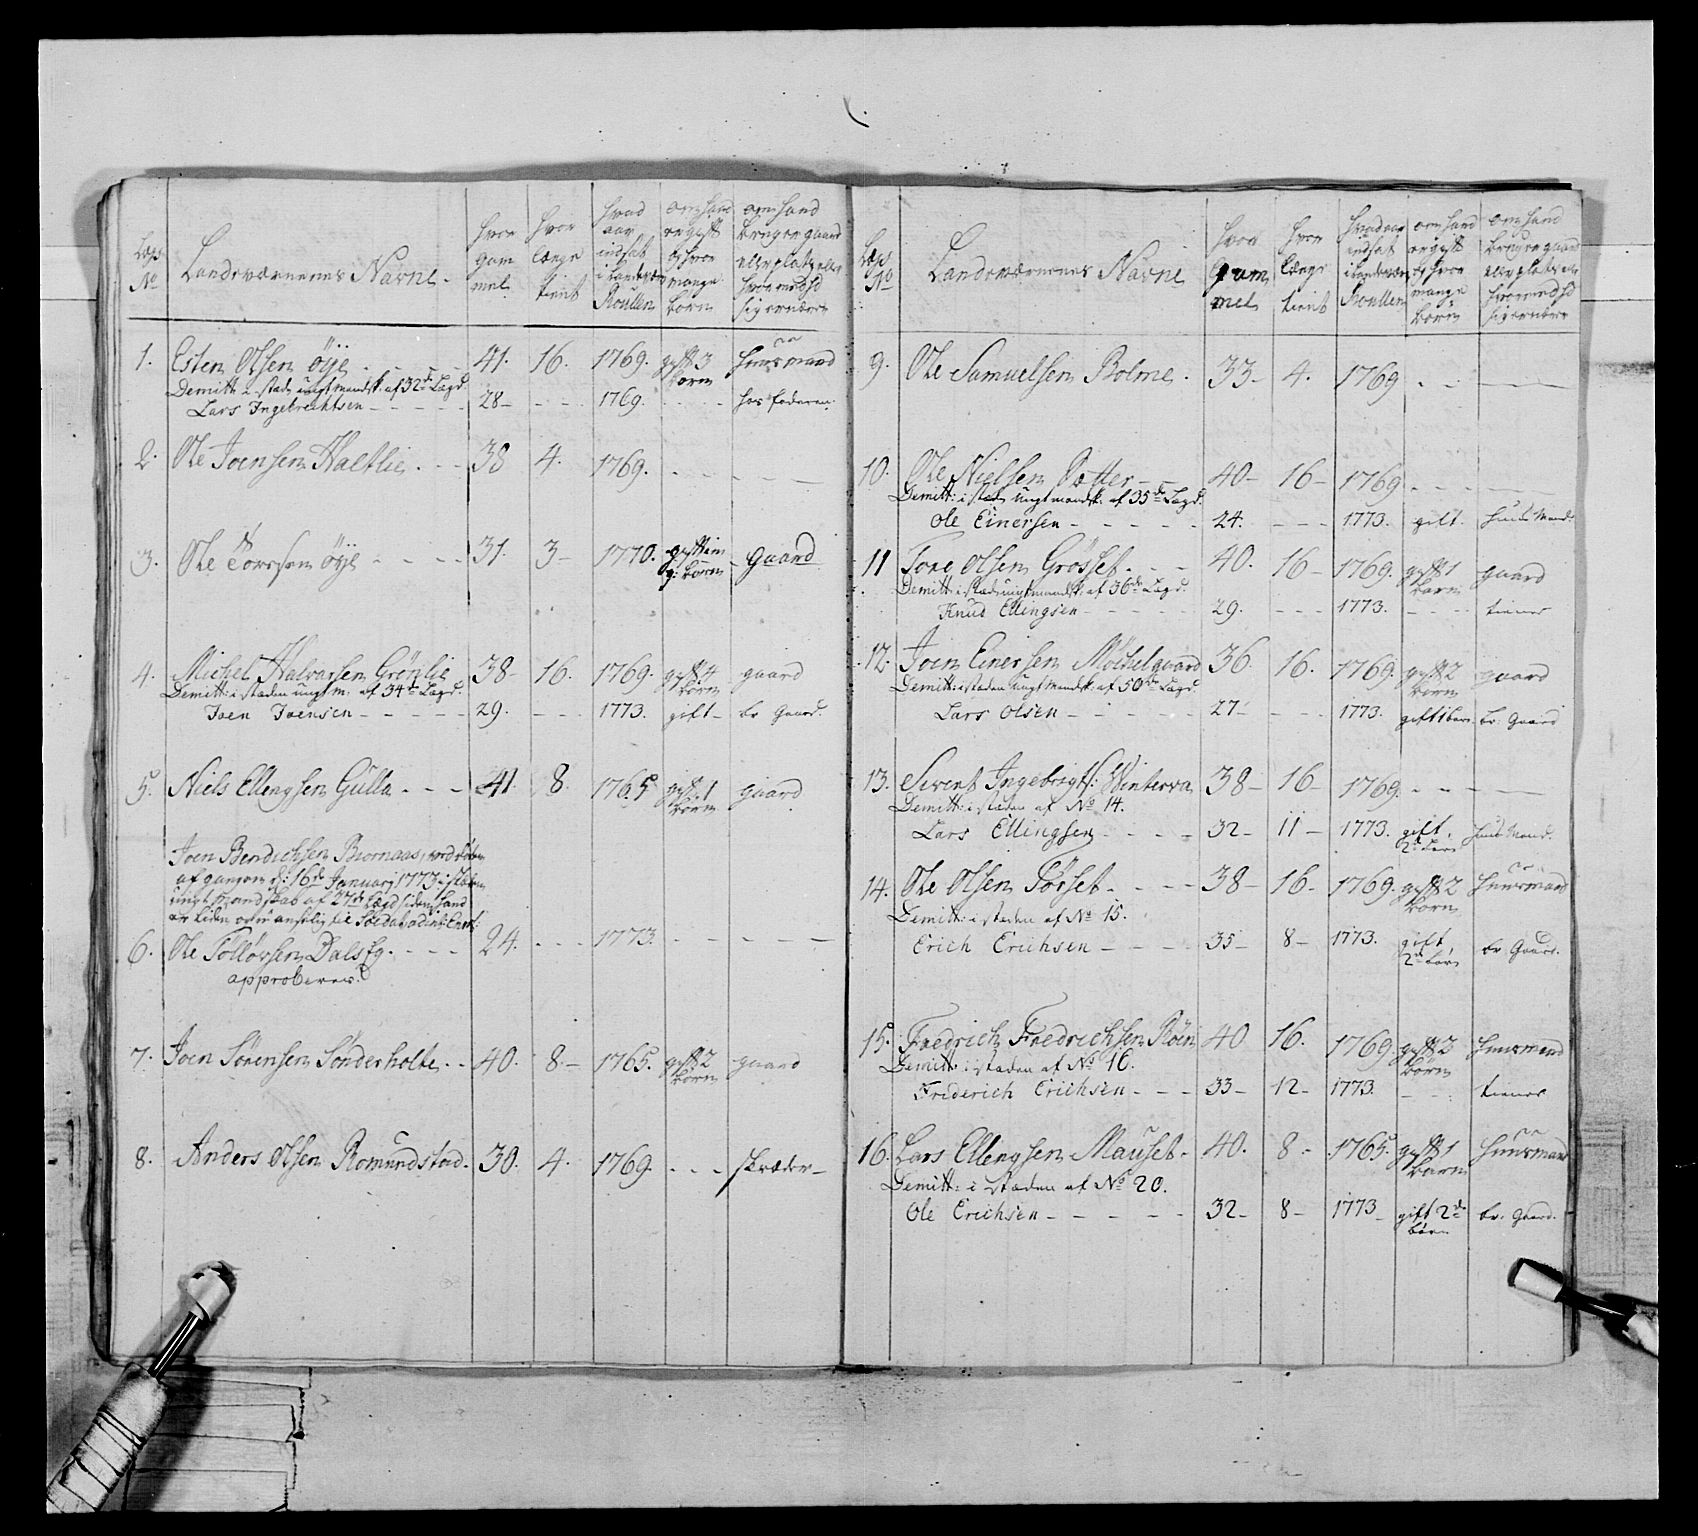 Lægs No
Landsværnenes Navne.
hvor gam mel
hvor længe tient
hvad aar indsat i Landeværn Roullen
om hand er gift og hvor mange børn
om hand bruger gaard eller platz eller hvormed hand sig ernærer
1. Esten Olsen Öÿe - - - 41. 16. 1769. gift 3 børn huusmand
Demitt: i staden ungt mandsk: af 32te Lægd.
Lars Ingebrechtsen - - - - 28 - - - - 1769. - - - - hos faderen.
2. Ole Joensen Haltlie. - - 38 4. 1769. - - - -
3. Ole Torssen Öÿe - - - - 31. 3 - 1770. gift in g: børn gaard
4. Michel Halvorsen Grönlie 38 - 16. 1769. gift 4 børn gaard
Demitt: i staden ungt m: af 34te Lægd.
Joen Joensen - - - - - 29. - - - 1773. gift - br Gaard.
5. Niels Ellengsen Gulla - - - 41. 8. 1765 gift 1 børn gaard
Joen Bendichsen Biørnaas, ved
afgangen d: 16de Januarj 1773 i staden
ungt Mandskab af 27de Lægd siden hand
er liden og
6. Ole Tolløvsen Dalseg. - - - 24. - - - 1773. - - - - -
approberes.
7. Joen Sörensen Sönderholte. - 40. 8. - 1765. gift 2 børn gaard
8. Anders Olsen Romundstad. 30. 4. 1769. - - - skræder -
Lægs No
Landsværnenes Navne
hvor gam mel
hvor længe tient
hvad aar indsat i Landeværn Roullen
om hand er gift og hvor mange børn
om hand bruger gaard eller platz eller hvormed hand sig ernærer
9. Ole Samuelsen Bolme. 33 - 4. 1769 - - -
10. Ole Nielsen Sætter - - 40 - 16 - 1769 - - - -
Demitt: i staden ungt mandsk: af 35te Lægd.
Ole Einersen - - - - - 24. - - - 1773. gift. Huus Mand.
11 Tore Olsen Grösset - - - 40. 16 - 1769. gift 1 barn gaard
Demitt: i staden ungt mandsk: af 36te Lægd.
Knud Ellingsen - - - - - 29. - - - 1773. - - - - tiener
12. Joen Einersen Möchelgaard 36. 16. 1769. gift 2 børn gaard
Demitt: i staden ungt Mandsk: af 50de Lægd.
Lars Olsen - - - - - 27 - - - - 1773. gift 1 barn. br: Gaard
13. Sivert Ingebrigts: Winterva 38 - 16 - 1769. - - - -
Demitt: i staden af No 14.
Lars Ellingsen - - - - 32 - 11 - 1773. gift, 2de børn Huus Mand.
14. Ole Olsen Törset - - - - 38 - 16 - 1769. gift 2 børn huusmand
Demitt: i staden af No 15.
Erich Erichsen - - - - 35 - 8 - 1773. gift, 2de børn br Gaard.
15. Fredrich Fredrichsen Röen 40 16. 1769 gift 2 børn huusmand
Demitt: i staden af No 16.
Friderich Erichsen - - - 33 - 12 - 1773. - - - tiener
16. Lars Ellengsen Mauset - 40. 8 - 1765. gift 1 barn huusmand
Demitt: i staden af No 20.
Ole Erichsen - - - - - 32 - 8 - 1773 - gift 2de børn br. Gaard.